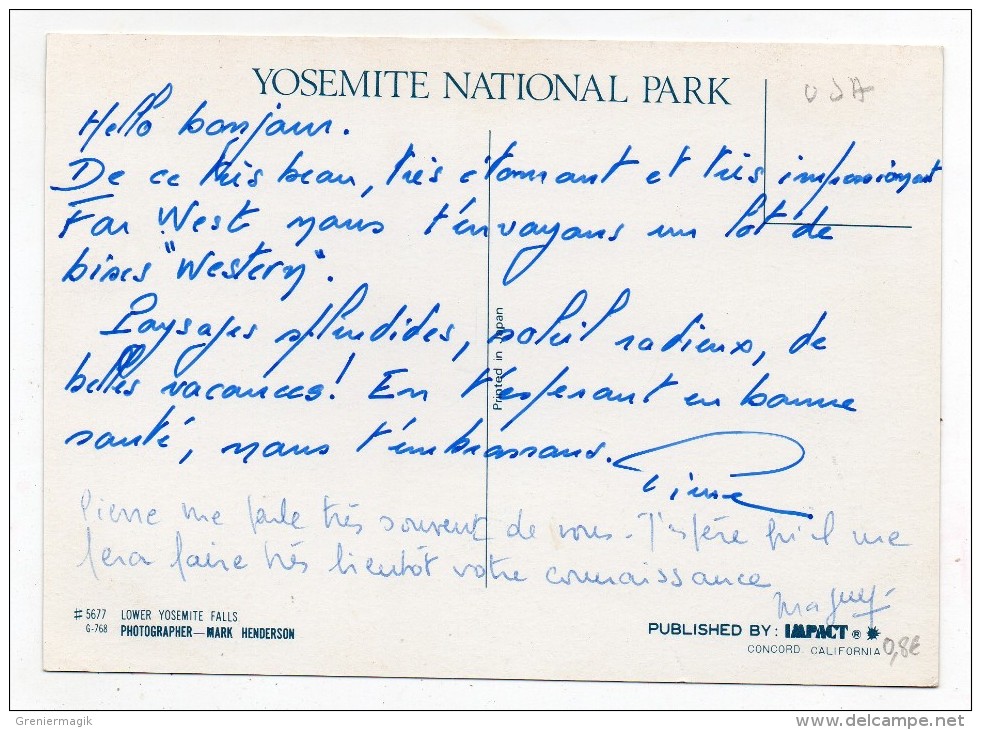 YOSEMITE NATIONAL PARK
USA
Hello bonjour.
De ce très beau, très étonnant et très impressionnant
Far West nous t'envoyons un lot de
bises "Western".
Paysages splendides, soleil radieux, de
belles vacances! En t'espérant en bonne
santé, nous t'embrassons.
Pierre
Pierre me parle très souvent de vous. J'espère qu'il me
fera faire très bientôt votre connaissance
Maguy
Printed in Japan
# 5677 LOWER YOSEMITE FALLS
G-768 PHOTOGRAPHER—MARK HENDERSON
PUBLISHED BY: IMPACT ®
CONCORD, CALIFORNIA
0,8€
Greniermagik
www.delcampe.net